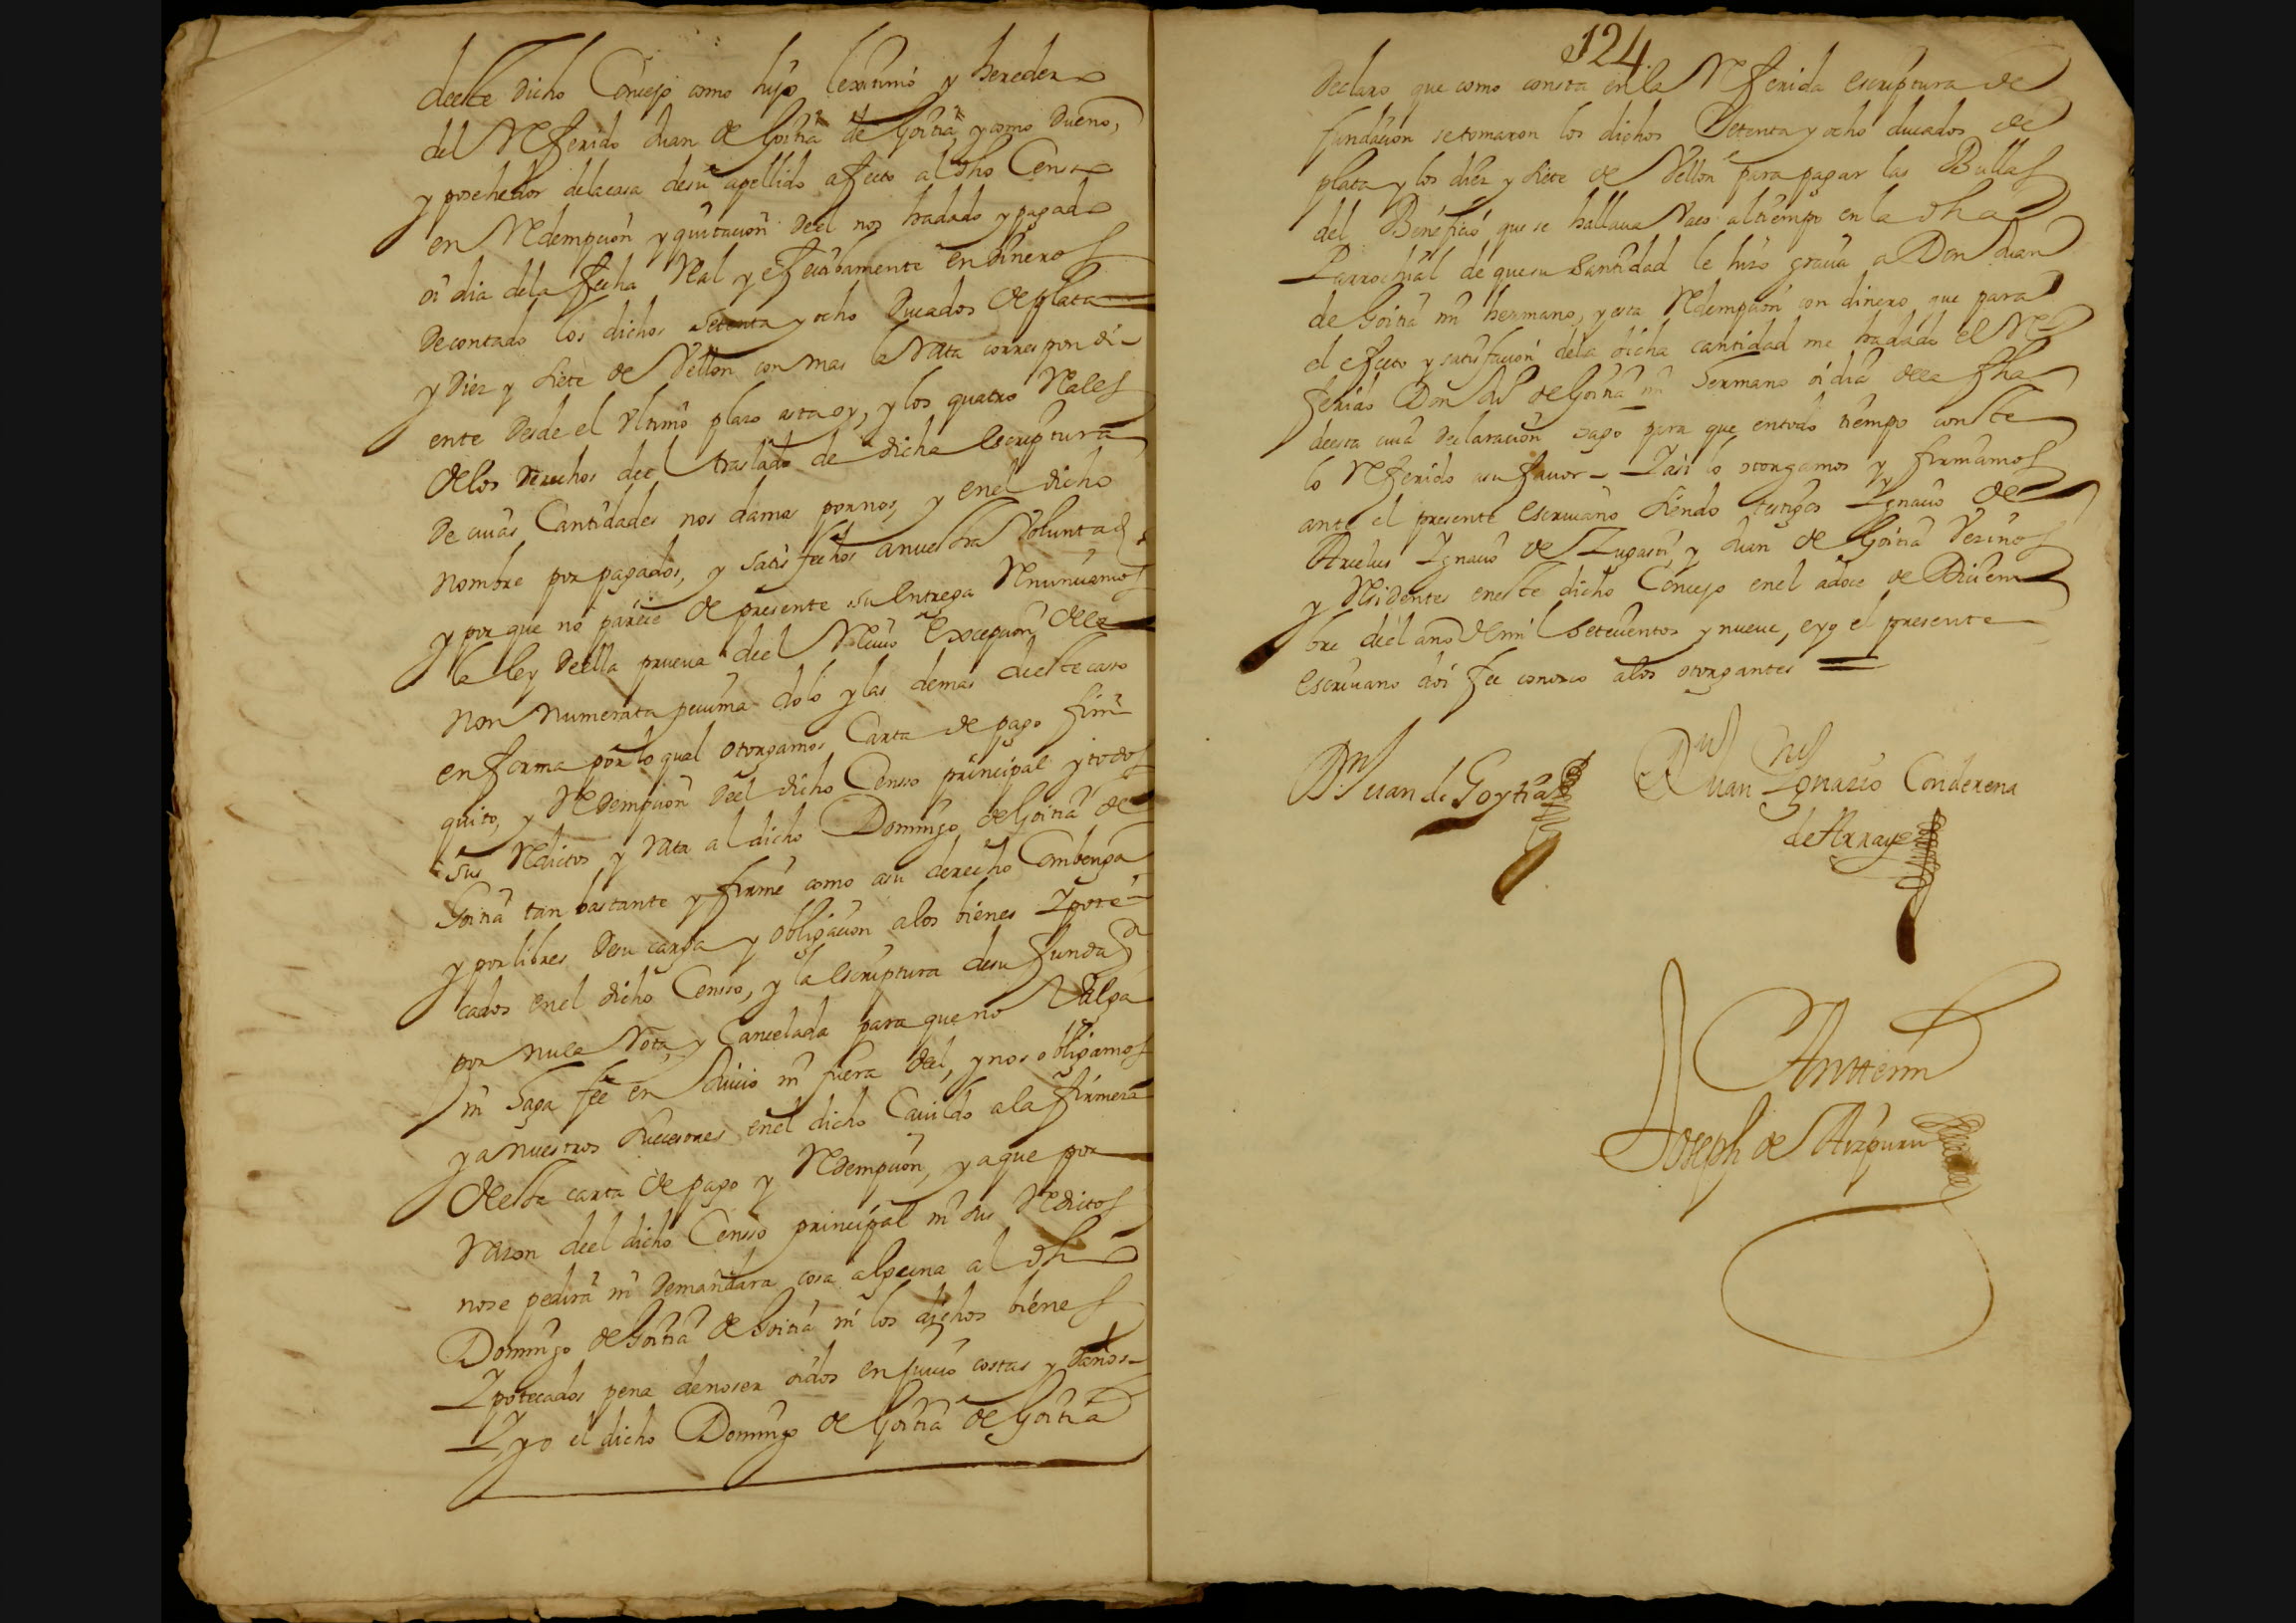 deeste dicho Concejo como hijo lexitimo y heredero
del Referido Juan de Goitia de Goitia, y como Dueño,
y posehedor delacasa desu apellido afecto al dho Censo
en Redempcion y quitacion deel nos hadado y pagado
oi dia dela fecha Real y efectibamente en dineros
decontado los dichos setenta y ocho Ducados de plata
y Diez y siete de Vellon con mas la Rata correspondi-
ente desde el Vltimo plazo asta oy, y los quatro Reales
delos derechos deel traslado de dicha escriptura
de cuias Cantidades nos damos por nos, y enel dicho
nombre por pagados, y satisfechos anuestra Voluntad,
y por que no pareze de presente su entrega Renunciamos
la ley deella prueua deel Reciuo excepcion dela
non numerata pecunia dolo y las demas deeste caso
en forma por lo qual otorgamos Carta de pago fini
quito, y Redempcion deel dicho Censso principal y todos
sus Reditos y Rata al dicho Domingo de Goitia de
Goitia tan bastante y firme como asu derecho Combenga
y por libres desu carga y obligacion alos bienes Ypote-
cados enel dicho Censso, y la escriptura desu fundaon
por nula Rota, y Cancelada para que no Valga
ni haga fee en Juicio ni fuera del, y nos obligamos
y a nuestros subcesores enel dicho Cauildo ala firmeza
deesta carta de pago y Redempcion, y a que por
Razon deel dicho Censso principal ni sus Reditos
nose pedira ni demandara cosa alguna al dho
Domingo de Goitia de Goitia ni los dichos bienes
Ypotecados pena denoser oidos en juicio costas y daños-
Y yo el dicho Domingo de Goitia de Goitia
124
Declaro que como consta enla Referida escriptura de
fundacion setomaron los dichos Setenta y ocho ducados de
plata y los diez y siete de Vellon para pagar las Bullas
del Beneficio que se hallaua Vaco altiempo en la dha
Parrochial de quesu Santidad le hizo gracia a Don Juan
de Goitia mi hermano, y esta Redempcion con dinero que para
el efecto y satisfacion dela dicha cantidad me hadado el Re-
ferido Don Ju de Goitia mi hermano oi dia dela fha
deesta cuia declaracion hago para que entodo tiempo conste
lo Referido asu fauor - Y asi lo otorgamos y firmamos
ante el presente escriuano siendo testigos Ygnacio de
Arcelus Ygnacio de Zugasti, y Juan de Goitia Vezinos
y Residentes eneste dicho Concejo enel adoce de Diciem
bre deel año de mil setecientos y nueue, e yo el presente
escriuano doi fee conozco alos otorgantes =
Dn Juan de Goytia
Dn Juan Ygnazio Conderena
de Arraye
Antemi
Joseph de Aizpuru